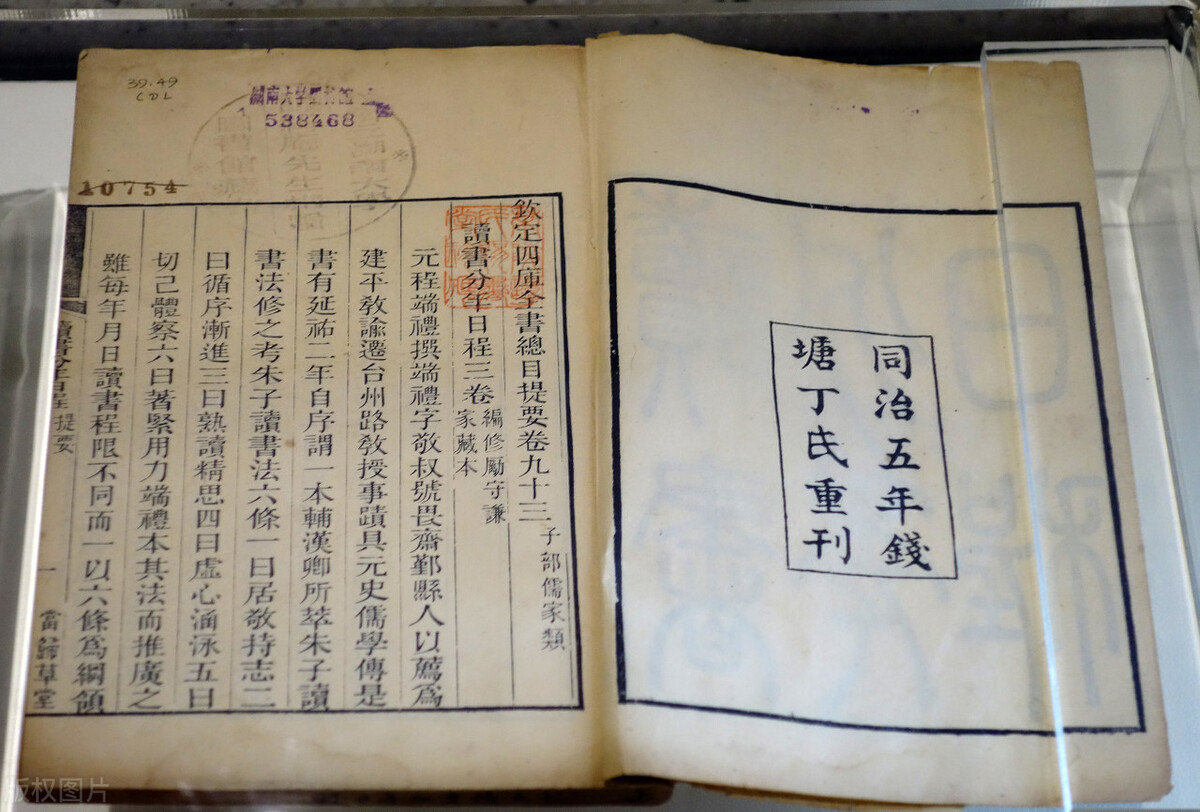 同治五年錢
塘丁氏重刊
39.49
CDL
538468
10754
欽定四庫全書總目提要卷九十三 子部儒家類
讀書分年日程三卷 編修勵守謙
家藏本
元程端禮撰端禮字敬叔號畏齋鄞縣人以薦爲
建平敎諭遷台州路敎授事蹟具元史儒學傳是
書有延祐二年自序謂一本輔漢卿所萃朱子讀
書法修之考朱子讀書法六條一曰居敬持志二
曰循序漸進三曰熟讀精思四曰虛心涵泳五曰
切己體察六曰著緊用力端禮本其法而推廣之
雖每年月日讀書程限不同而一以六條爲綱領
讀書分年日程 提要
一
當歸草堂
版权图片